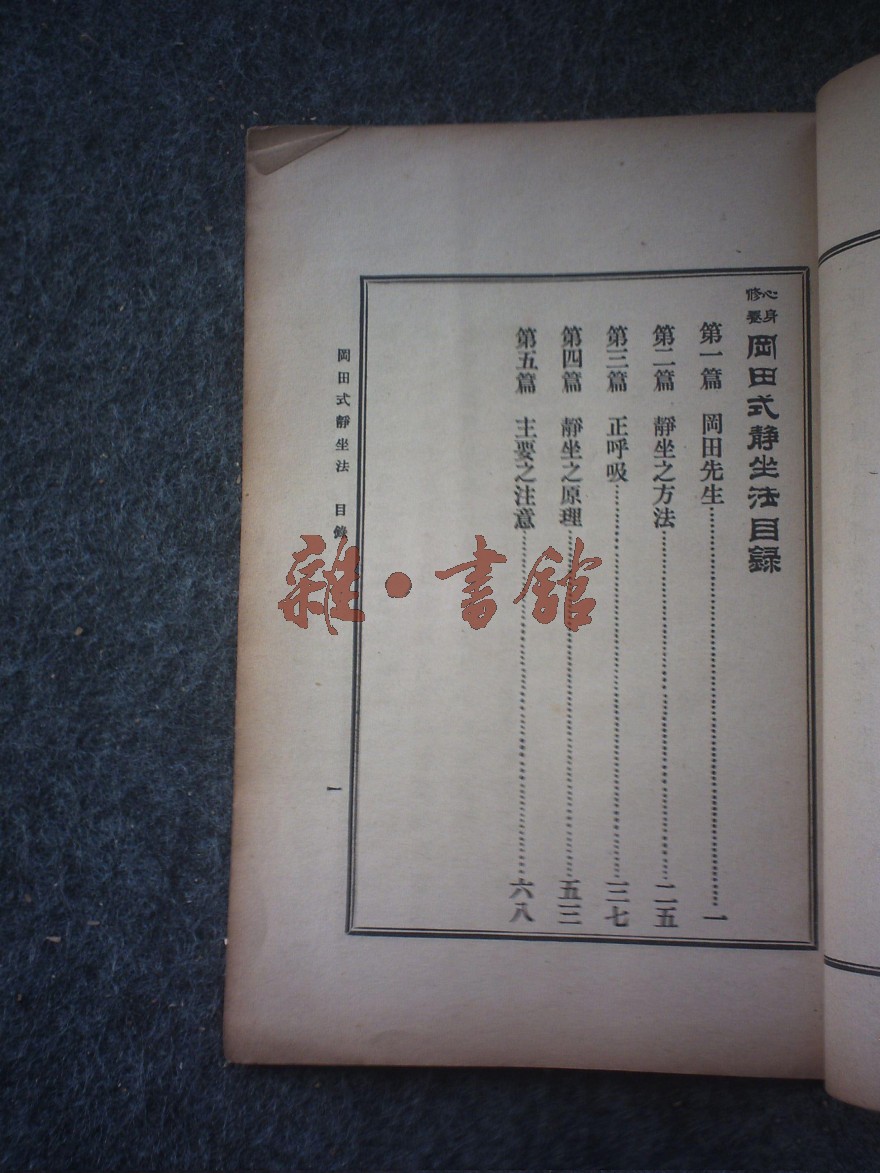 心身修養 岡田式靜坐法目錄
第一篇 岡田先生……一
第二篇 靜坐之方法……二五
第三篇 正呼吸……三七
第四篇 靜坐之原理……五三
第五篇 主要之注意……六八
岡田式靜坐法 目錄
一
雜·書館